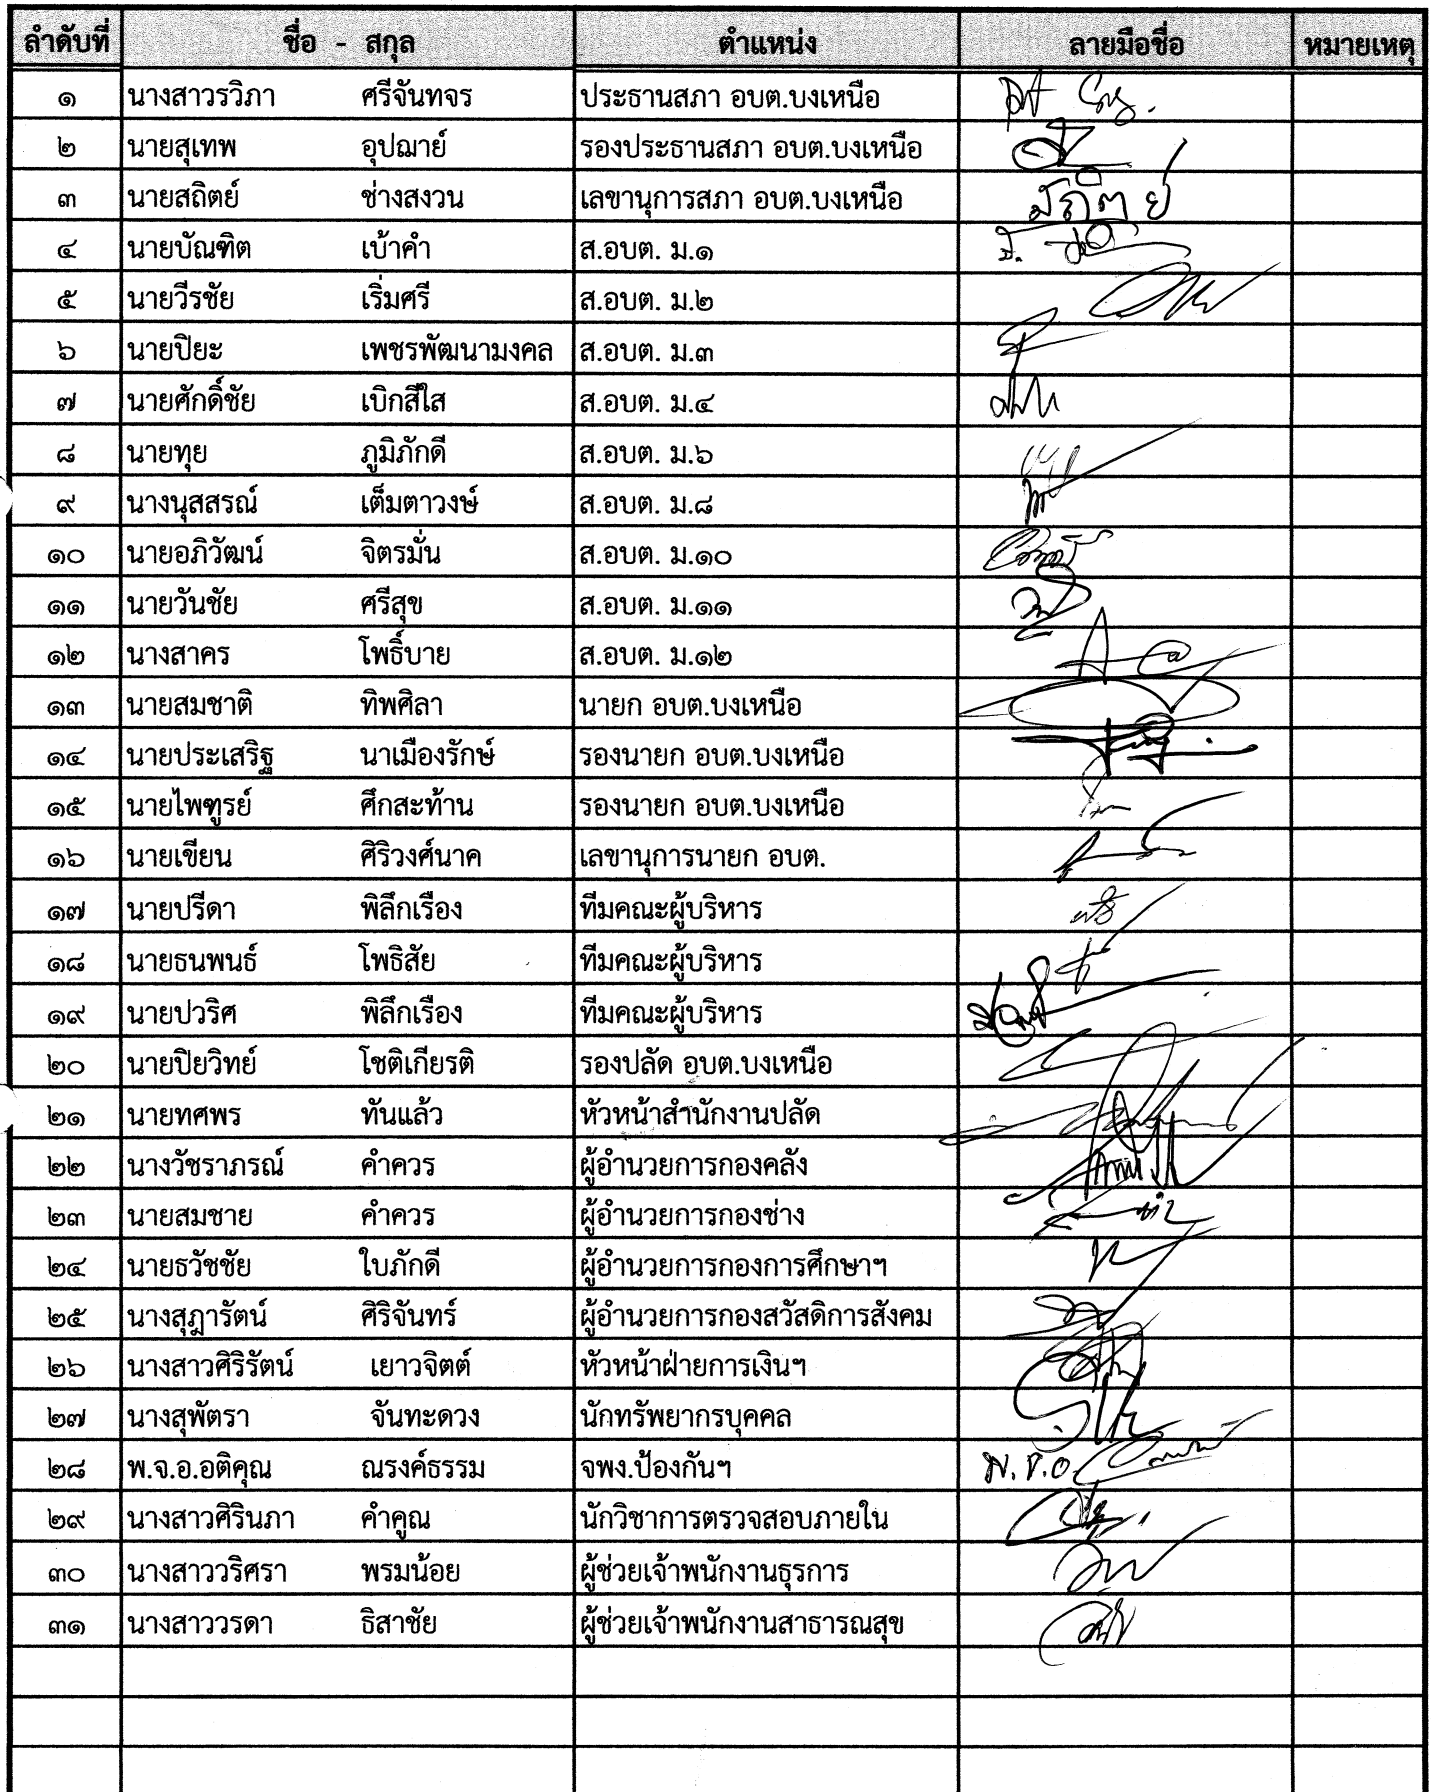 ลำดับที่ ชื่อ - สกุล ตำแหน่ง ลายมือชื่อ หมายเหตุ
๑ นางสาวรวิภา ศรีจันทจร ประธานสภา อบต.บงเหนือ
๒ นายสุเทพ อุปฌาย์ รองประธานสภา อบต.บงเหนือ
๓ นายสถิตย์ ช่างสงวน เลขานุการสภา อบต.บงเหนือ สถิตย์
๔ นายบัณฑิต เบ้าคำ ส.อบต. ม.๑
๕ นายวีรชัย เริ่มศรี ส.อบต. ม.๒
๖ นายปิยะ เพชรพัฒนามงคล ส.อบต. ม.๓
๗ นายศักดิ์ชัย เบิกสีใส ส.อบต. ม.๔
๘ นายทุย ภูมิภักดี ส.อบต. ม.๖
๙ นางนุสสรณ์ เต็มตาวงษ์ ส.อบต. ม.๘
๑๐ นายอภิวัฒน์ จิตรมั่น ส.อบต. ม.๑๐
๑๑ นายวันชัย ศรีสุข ส.อบต. ม.๑๑
๑๒ นางสาคร โพธิ์บาย ส.อบต. ม.๑๒
๑๓ นายสมชาติ ทิพศิลา นายก อบต.บงเหนือ
๑๔ นายประเสริฐ นาเมืองรักษ์ รองนายก อบต.บงเหนือ
๑๕ นายไพฑูรย์ ศึกสะท้าน รองนายก อบต.บงเหนือ
๑๖ นายเขียน ศิริวงศ์นาค เลขานุการนายก อบต.
๑๗ นายปรีดา พิลึกเรือง ทีมคณะผู้บริหาร
๑๘ นายธนพนธ์ โพธิสัย ทีมคณะผู้บริหาร
๑๙ นายปวริศ พิลึกเรือง ทีมคณะผู้บริหาร
๒๐ นายปิยวิทย์ โชติเกียรติ รองปลัด อบต.บงเหนือ
๒๑ นายทศพร ทันแล้ว หัวหน้าสำนักงานปลัด
๒๒ นางวัชราภรณ์ คำควร ผู้อำนวยการกองคลัง
๒๓ นายสมชาย คำควร ผู้อำนวยการกองช่าง
๒๔ นายธวัชชัย ใบภักดี ผู้อำนวยการกองการศึกษาฯ
๒๕ นางสุฎารัตน์ ศิริจันทร์ ผู้อำนวยการกองสวัสดิการสังคม
๒๖ นางสาวศิริรัตน์ เยาวจิตต์ หัวหน้าฝ่ายการเงินฯ
๒๗ นางสุพัตรา จันทะดวง นักทรัพยากรบุคคล
๒๘ พ.จ.อ.อติคุณ ณรงค์ธรรม จพง.ป้องกันฯ พ.จ.อ.
๒๙ นางสาวศิรินภา คำคูณ นักวิชาการตรวจสอบภายใน
๓๐ นางสาววริศรา พรมน้อย ผู้ช่วยเจ้าพนักงานธุรการ
๓๑ นางสาววรดา ธิสาชัย ผู้ช่วยเจ้าพนักงานสาธารณสุข